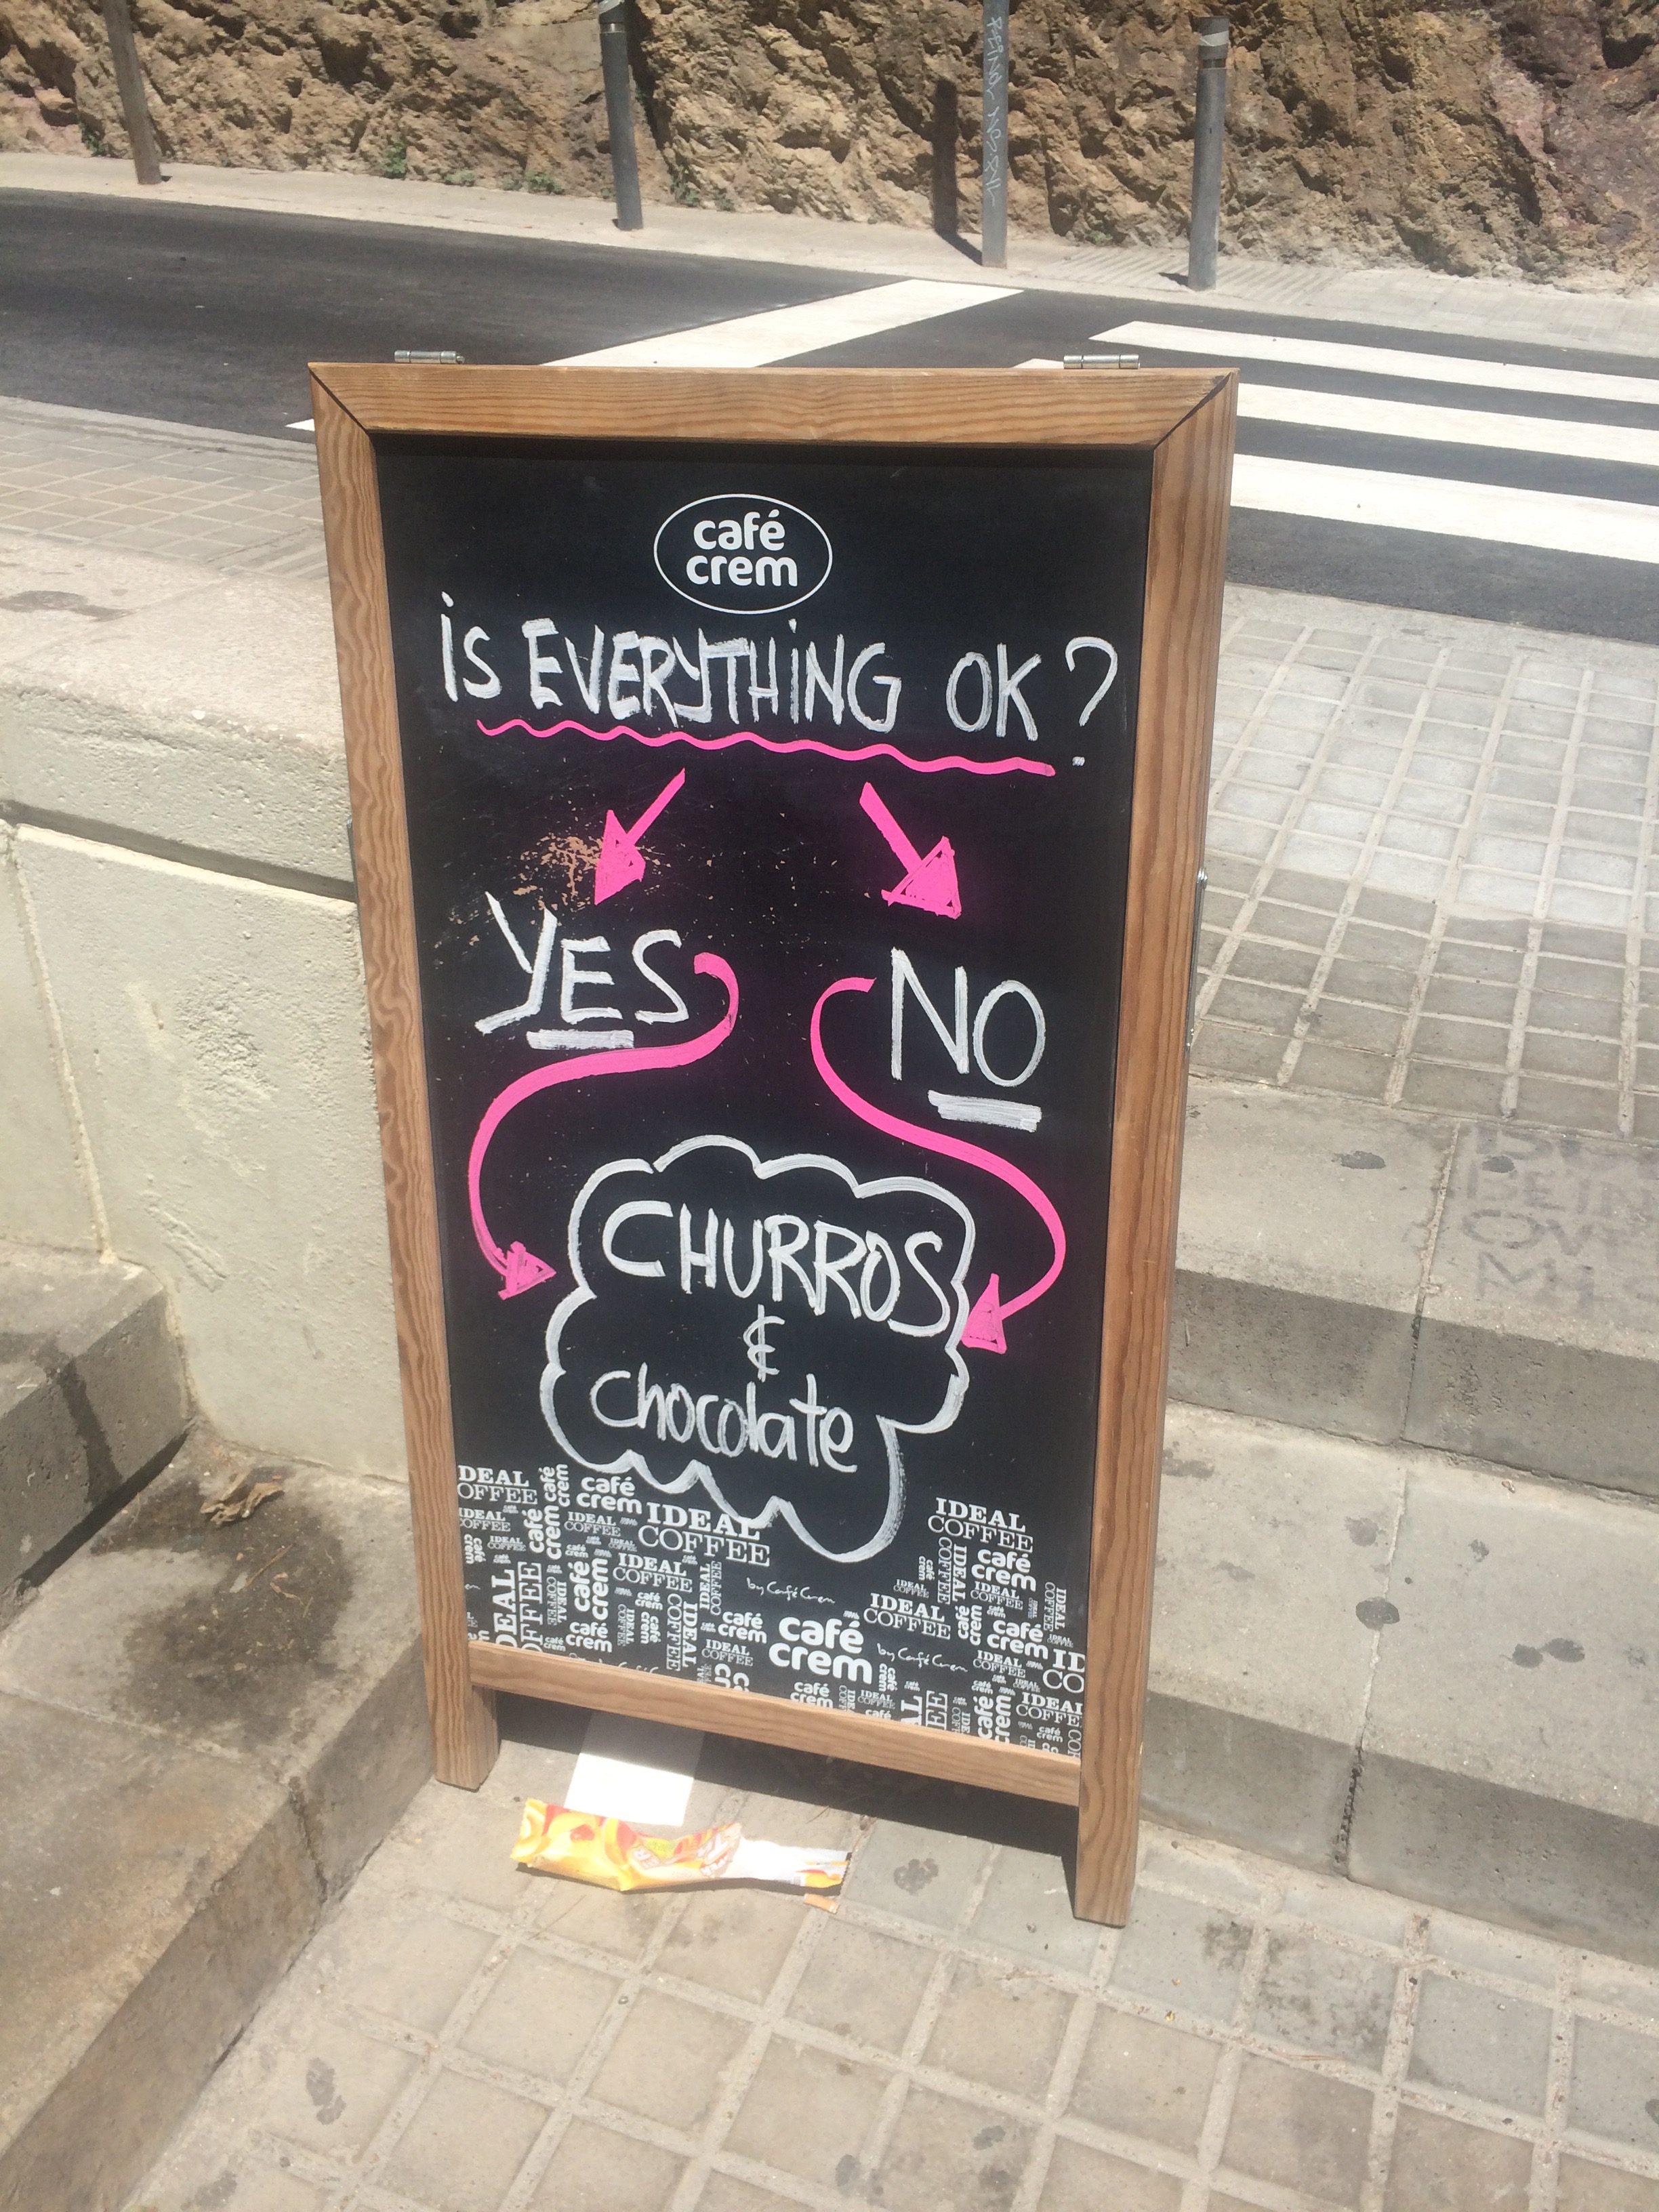 café
crem
is EVERYTHiNG OK?
YES
NO
CHURROS
&
chocolate
IDEAL
COFFEE
café
crem
IDEAL
COFFEE
IDEAL
COFFEE
café
crem
IDEAL
COFFEE
by Café Crem
IDEAL
COFFEE
café
crem
café
crem
IDEAL
COFFEE
café
crem
café
crem
by Café Crem
IDEAL
COFFEE
café
crem
IDEAL
COFFEE